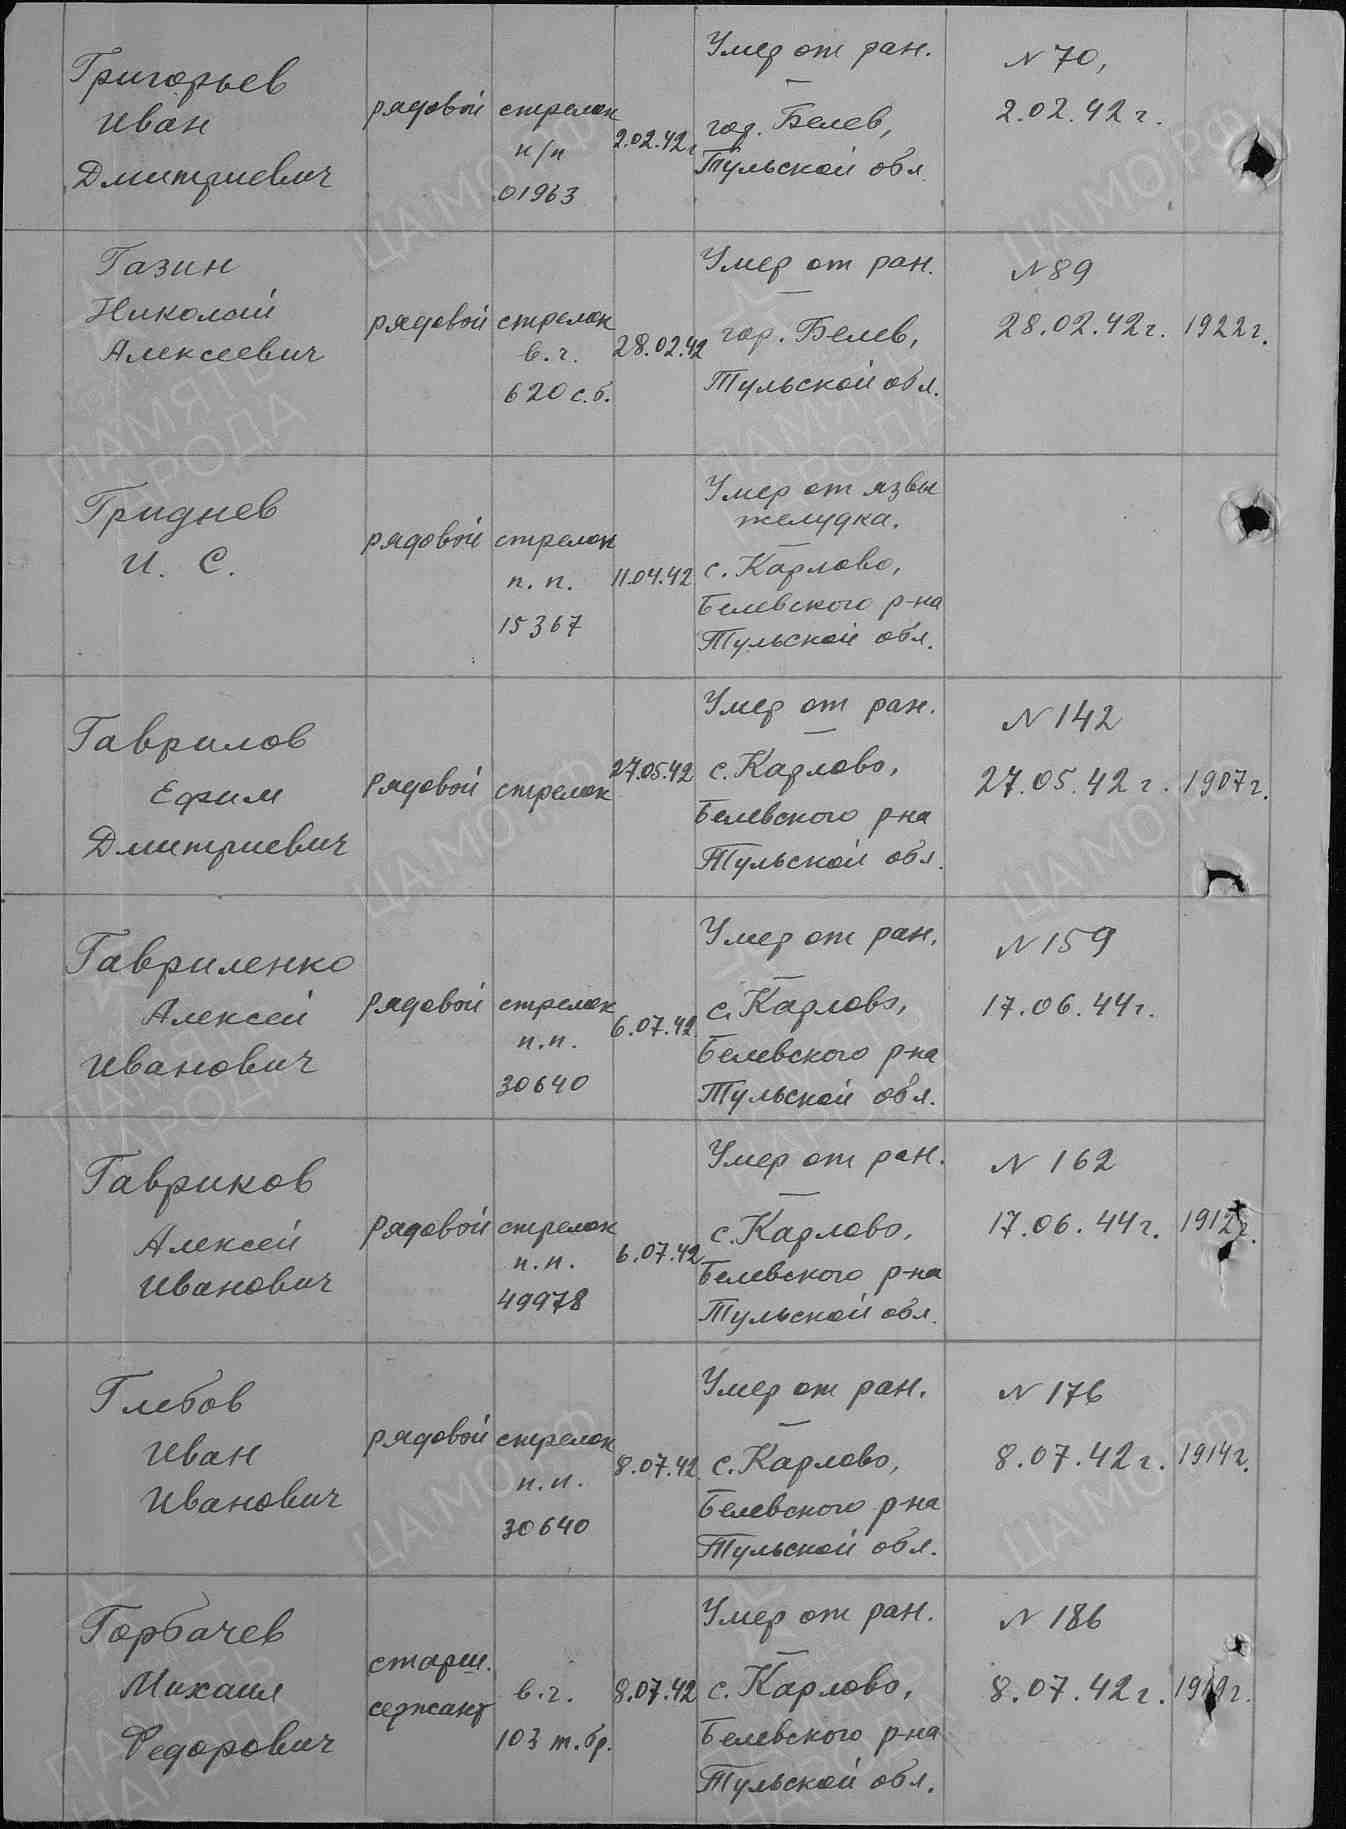 Григорьев
Иван
Дмитриевич
рядовой
стрелок
п/п
01963
2.02.42г
Умер от ран.
гор. Белев,
Тульской обл.
N 70,
2.02.42 г.
Газин
Николай
Алексеевич
рядовой
стрелок
в.ч.
620 с.б.
28.02.42
Умер от ран.
гор. Белев,
Тульской обл.
N 89
28.02.42г.
1922г.
Гриднев
И. С.
рядовой
стрелок
п. п.
15367
11.04.42
Умер от язвы
желудка.
с. Карлово,
Белевского р-на
Тульской обл.
Гаврилов
Ефим
Дмитриевич
Рядовой
стрелок
27.05.42
Умер от ран.
с. Карлово,
Белевского р-на
Тульской обл.
N 142
27.05.42 г.
1907г.
Гавриленко
Алексей
Иванович
Рядовой
стрелок
п.п.
30640
6.07.42
Умер от ран.
с. Карлово,
Белевского р-на
Тульской обл.
N 159
17.06.44г.
Гавриков
Алексей
Иванович
Рядовой
стрелок
п.п.
49978
6.07.42
Умер от ран.
с. Карлово,
Белевского р-на
Тульской обл.
N 162
17.06.44г.
1912г.
Глебов
Иван
Иванович
рядовой
стрелок
п.п.
30640
8.07.42
Умер от ран.
с. Карлово,
Белевского р-на
Тульской обл.
N 176
8.07.42 г.
1914г.
Горбачев
Михаил
Федорович
старш.
сержант
в.ч.
103 т.бр.
8.07.42
Умер от ран.
с. Карлово,
Белевского р-на
Тульской обл.
N 186
8.07.42 г.
ЦАМО.РФ
ЦАМО.РФ
ПАМЯТЬ
НАРОДА
ПАМЯТЬ
НАРОДА
ЦАМО.РФ
ЦАМО.РФ
ПАМЯТЬ
НАРОДА
ПАМЯТЬ
НАРОДА
ЦАМО.РФ
ЦАМО.РФ
ПАМЯТЬ
НАРОДА
ПАМЯТЬ
НАРОДА